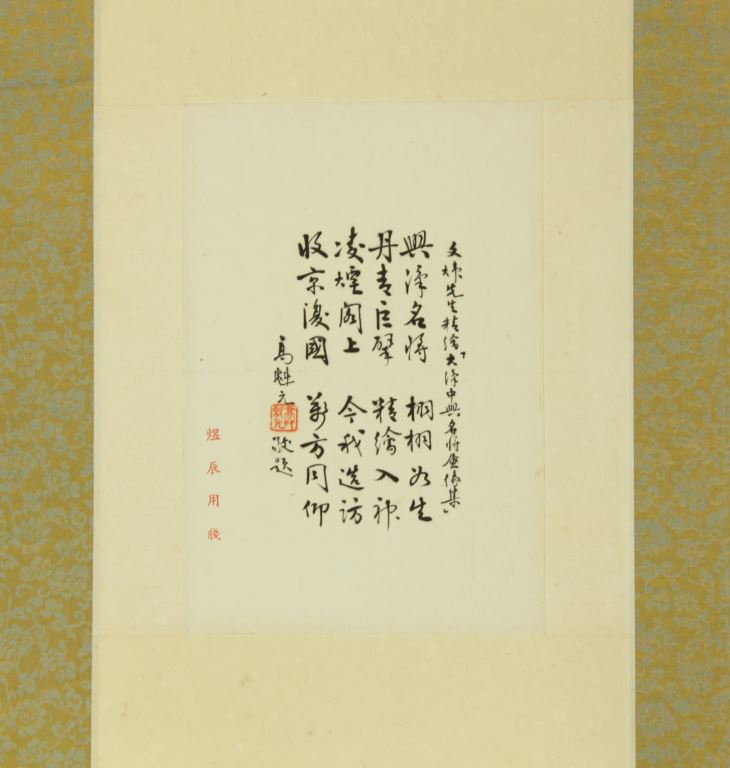 文煒先生精繪「大漢中興名將畫像集」
興漢名將 栩栩如生
丹青巨擘 精繪入神
凌煙閣上 今我造訪
收京復國 萬方同仰
高魁元 敬題
煜辰用牋